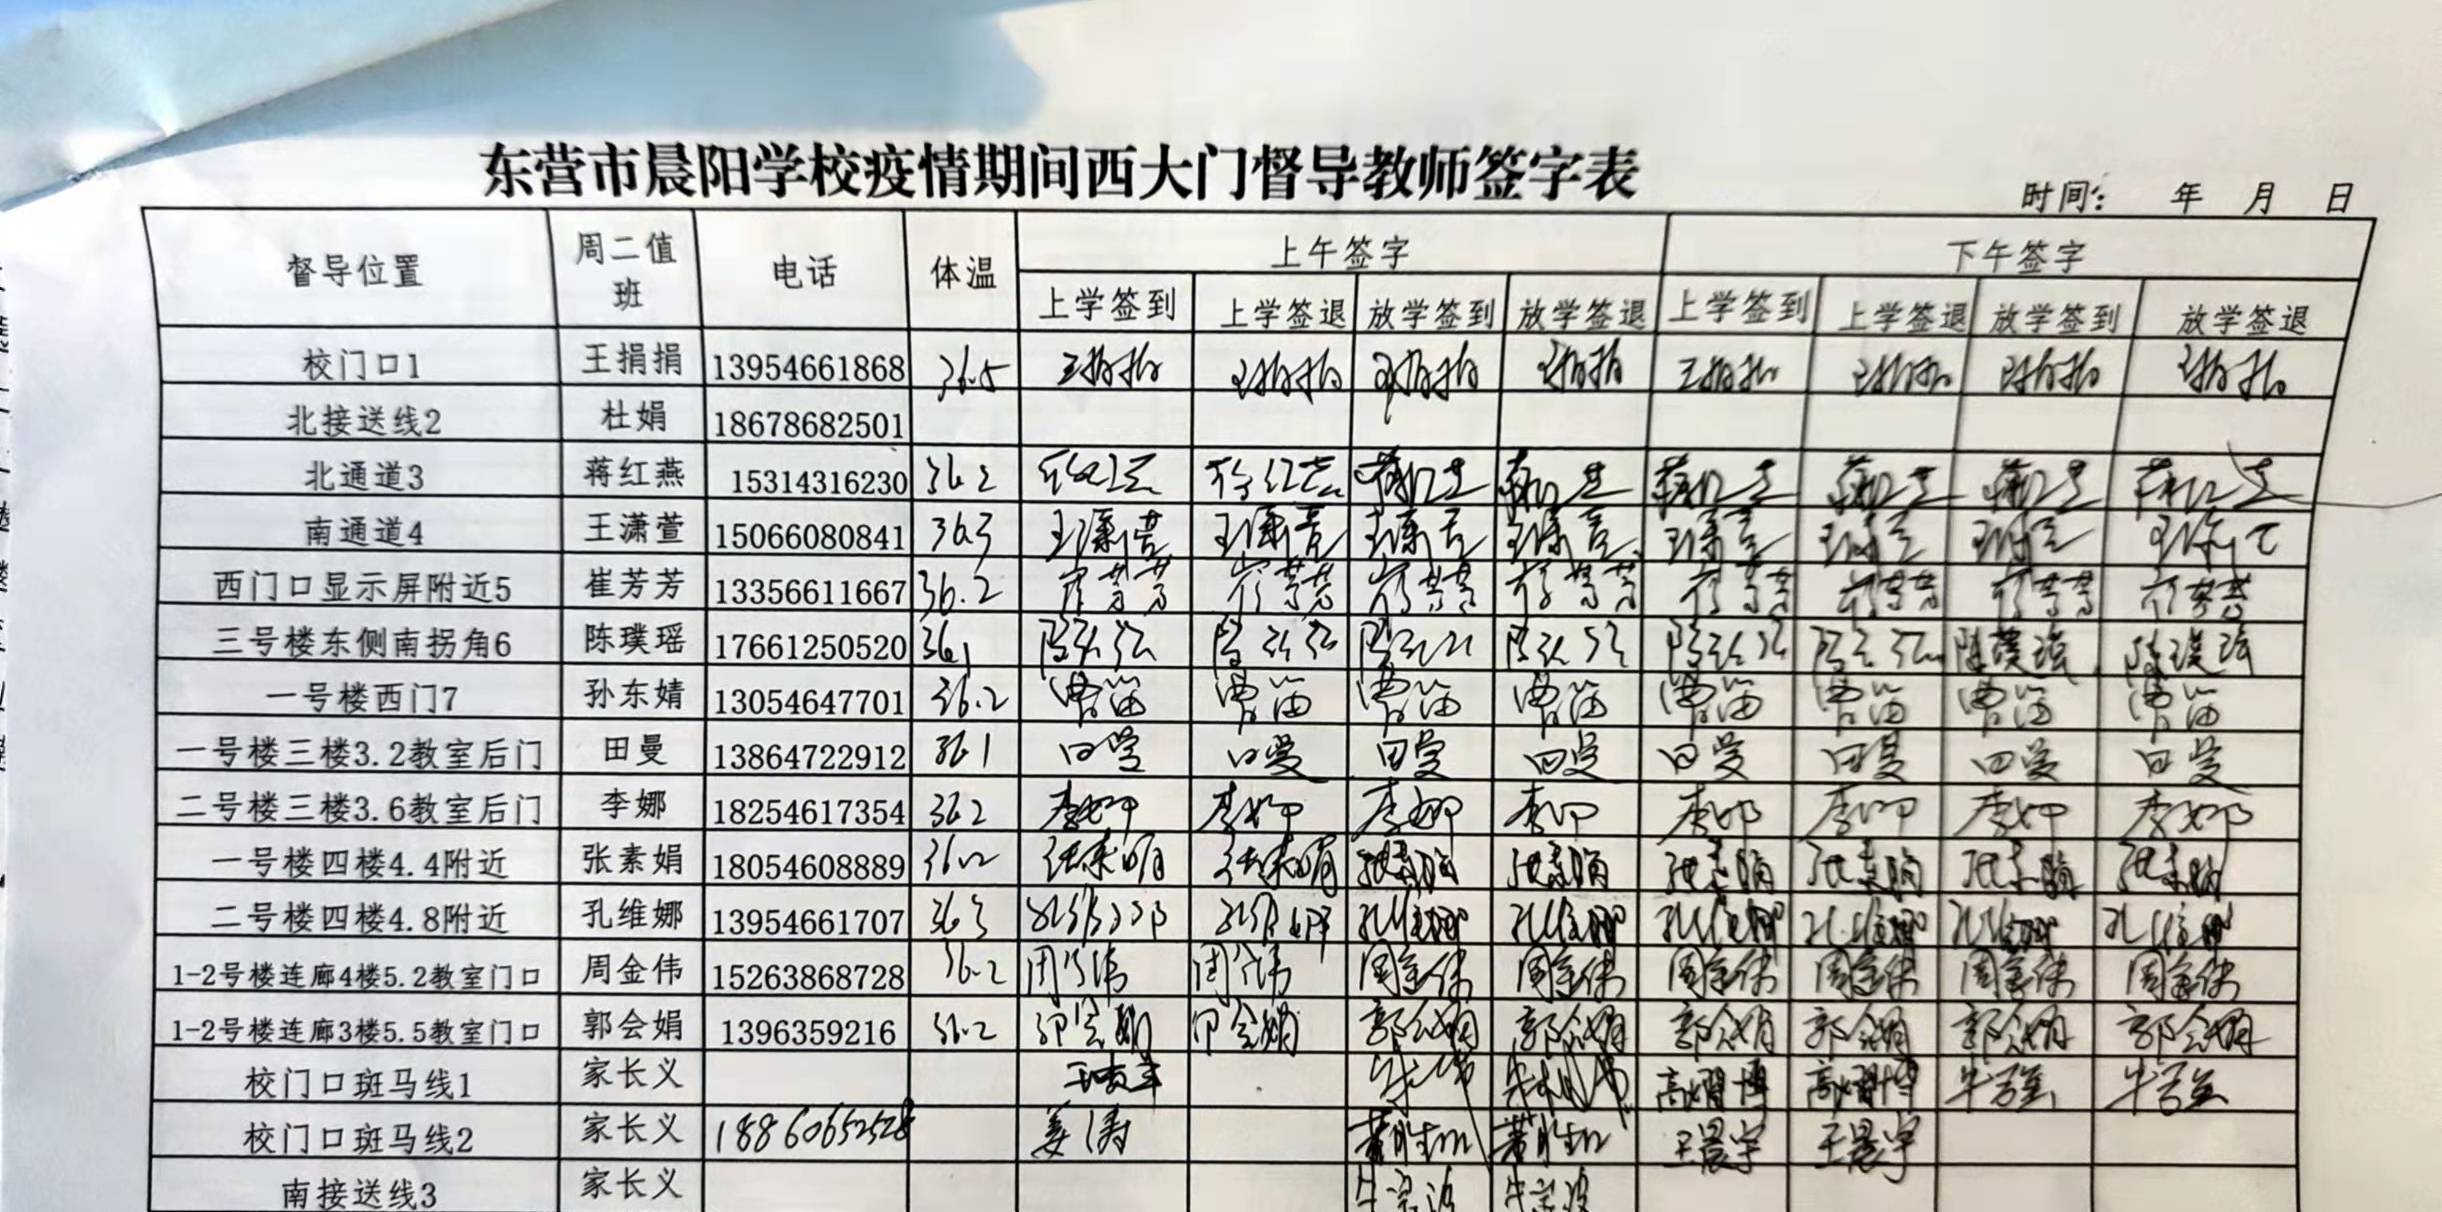 东营市晨阳学校疫情期间西大门督导教师签字表
时间： 年 月 日
督导位置 周二值班 电话 体温 上午签字 下午签字
上学签到 上学签退 放学签到 放学签退 上学签到 上学签退 放学签到 放学签退
校门口1 王捐捐 13954661868 36.5 王捐捐 王捐捐 王捐捐 王捐捐 王捐捐 王捐捐 王捐捐 王捐捐
北接送线2 杜娟 18678682501
北通道3 蒋红燕 15314316230 36.2
南通道4 王潇萱 15066080841 36.3
西门口显示屏附近5 崔芳芳 13356611667 36.2 崔芳芳 崔芳芳 崔芳芳 崔芳芳 崔芳芳 崔芳芳 崔芳芳 崔芳芳
三号楼东侧南拐角6 陈璞瑶 17661250520 36.1 陈璞瑶 陈璞瑶
一号楼西门7 孙东婧 13054647701 36.2 曹笛 曹笛 曹笛 曹笛 曹笛 曹笛 曹笛 曹笛
一号楼三楼3.2教室后门 田曼 13864722912 36.1 田曼 田曼 田曼 田曼 田曼 田曼 田曼 田曼
二号楼三楼3.6教室后门 李娜 18254617354 36.2 李娜 李娜 李娜 李娜 李娜 李娜 李娜 李娜
一号楼四楼4.4附近 张素娟 18054608889 36.2 张素娟 张素娟 张素娟 张素娟 张素娟 张素娟 张素娟 张素娟
二号楼四楼4.8附近 孔维娜 13954661707 36.3 孔维娜 孔维娜 孔维娜 孔维娜 孔维娜 孔维娜 孔维娜 孔维娜
1-2号楼连廊4楼5.2教室门口 周金伟 15263868728 36.2 周金伟 周金伟 周金伟 周金伟 周金伟 周金伟 周金伟 周金伟
1-2号楼连廊3楼5.5教室门口 郭会娟 1396359216 36.2 郭会娟 郭会娟 郭会娟 郭会娟 郭会娟 郭会娟 郭会娟 郭会娟
校门口斑马线1 家长义
校门口斑马线2 家长义 18860652528 姜涛 王晨宇 王晨宇
南接送线3 家长义